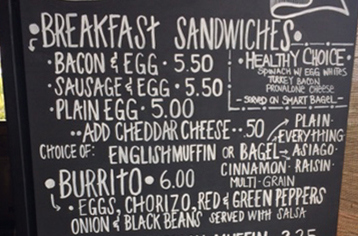 BREAKFAST SANDWICHES
• BACON & EGG • 5.50
• SAUSAGE & EGG • 5.50
• PLAIN EGG • 5.00
•• ADD CHEDDAR CHEESE ••.50
CHOICE OF: ENGLISH MUFFIN OR BAGEL→
PLAIN•
•EVERYTHING
ASIAGO•
CINNAMON • RAISIN•
MULTI-GRAIN
• HEALTHY CHOICE •
SPINACH W/ EGG WHITES
TURKEY BACON
PROVALONE CHEESE
SERVED ON SMART BAGEL
•BURRITO• 6.00
↳ EGGS, CHORIZO, RED & GREEN PEPPERS
ONION & BLACK BEANS SERVED WITH SALSA
MUFFIN